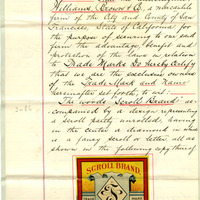 Williams, Brown & Co. a mercantile
firm of the City and County of San
Francisco State of California for
the purpose of securing to our said
firm the advantage, benefit and
protection of the laws in relation
to Trade Marks Do hereby Certify
that we are the exclusive owners
of the Trade Mark and Name
hereinafter set forth, to wit:
The words Scroll Brand ac-
companied by a design representing
a scroll partly unrolled, having
in the center a diamond in which
is a fancy scroll or letter, all as
shown in the following copy thereof
SCROLL BRAND